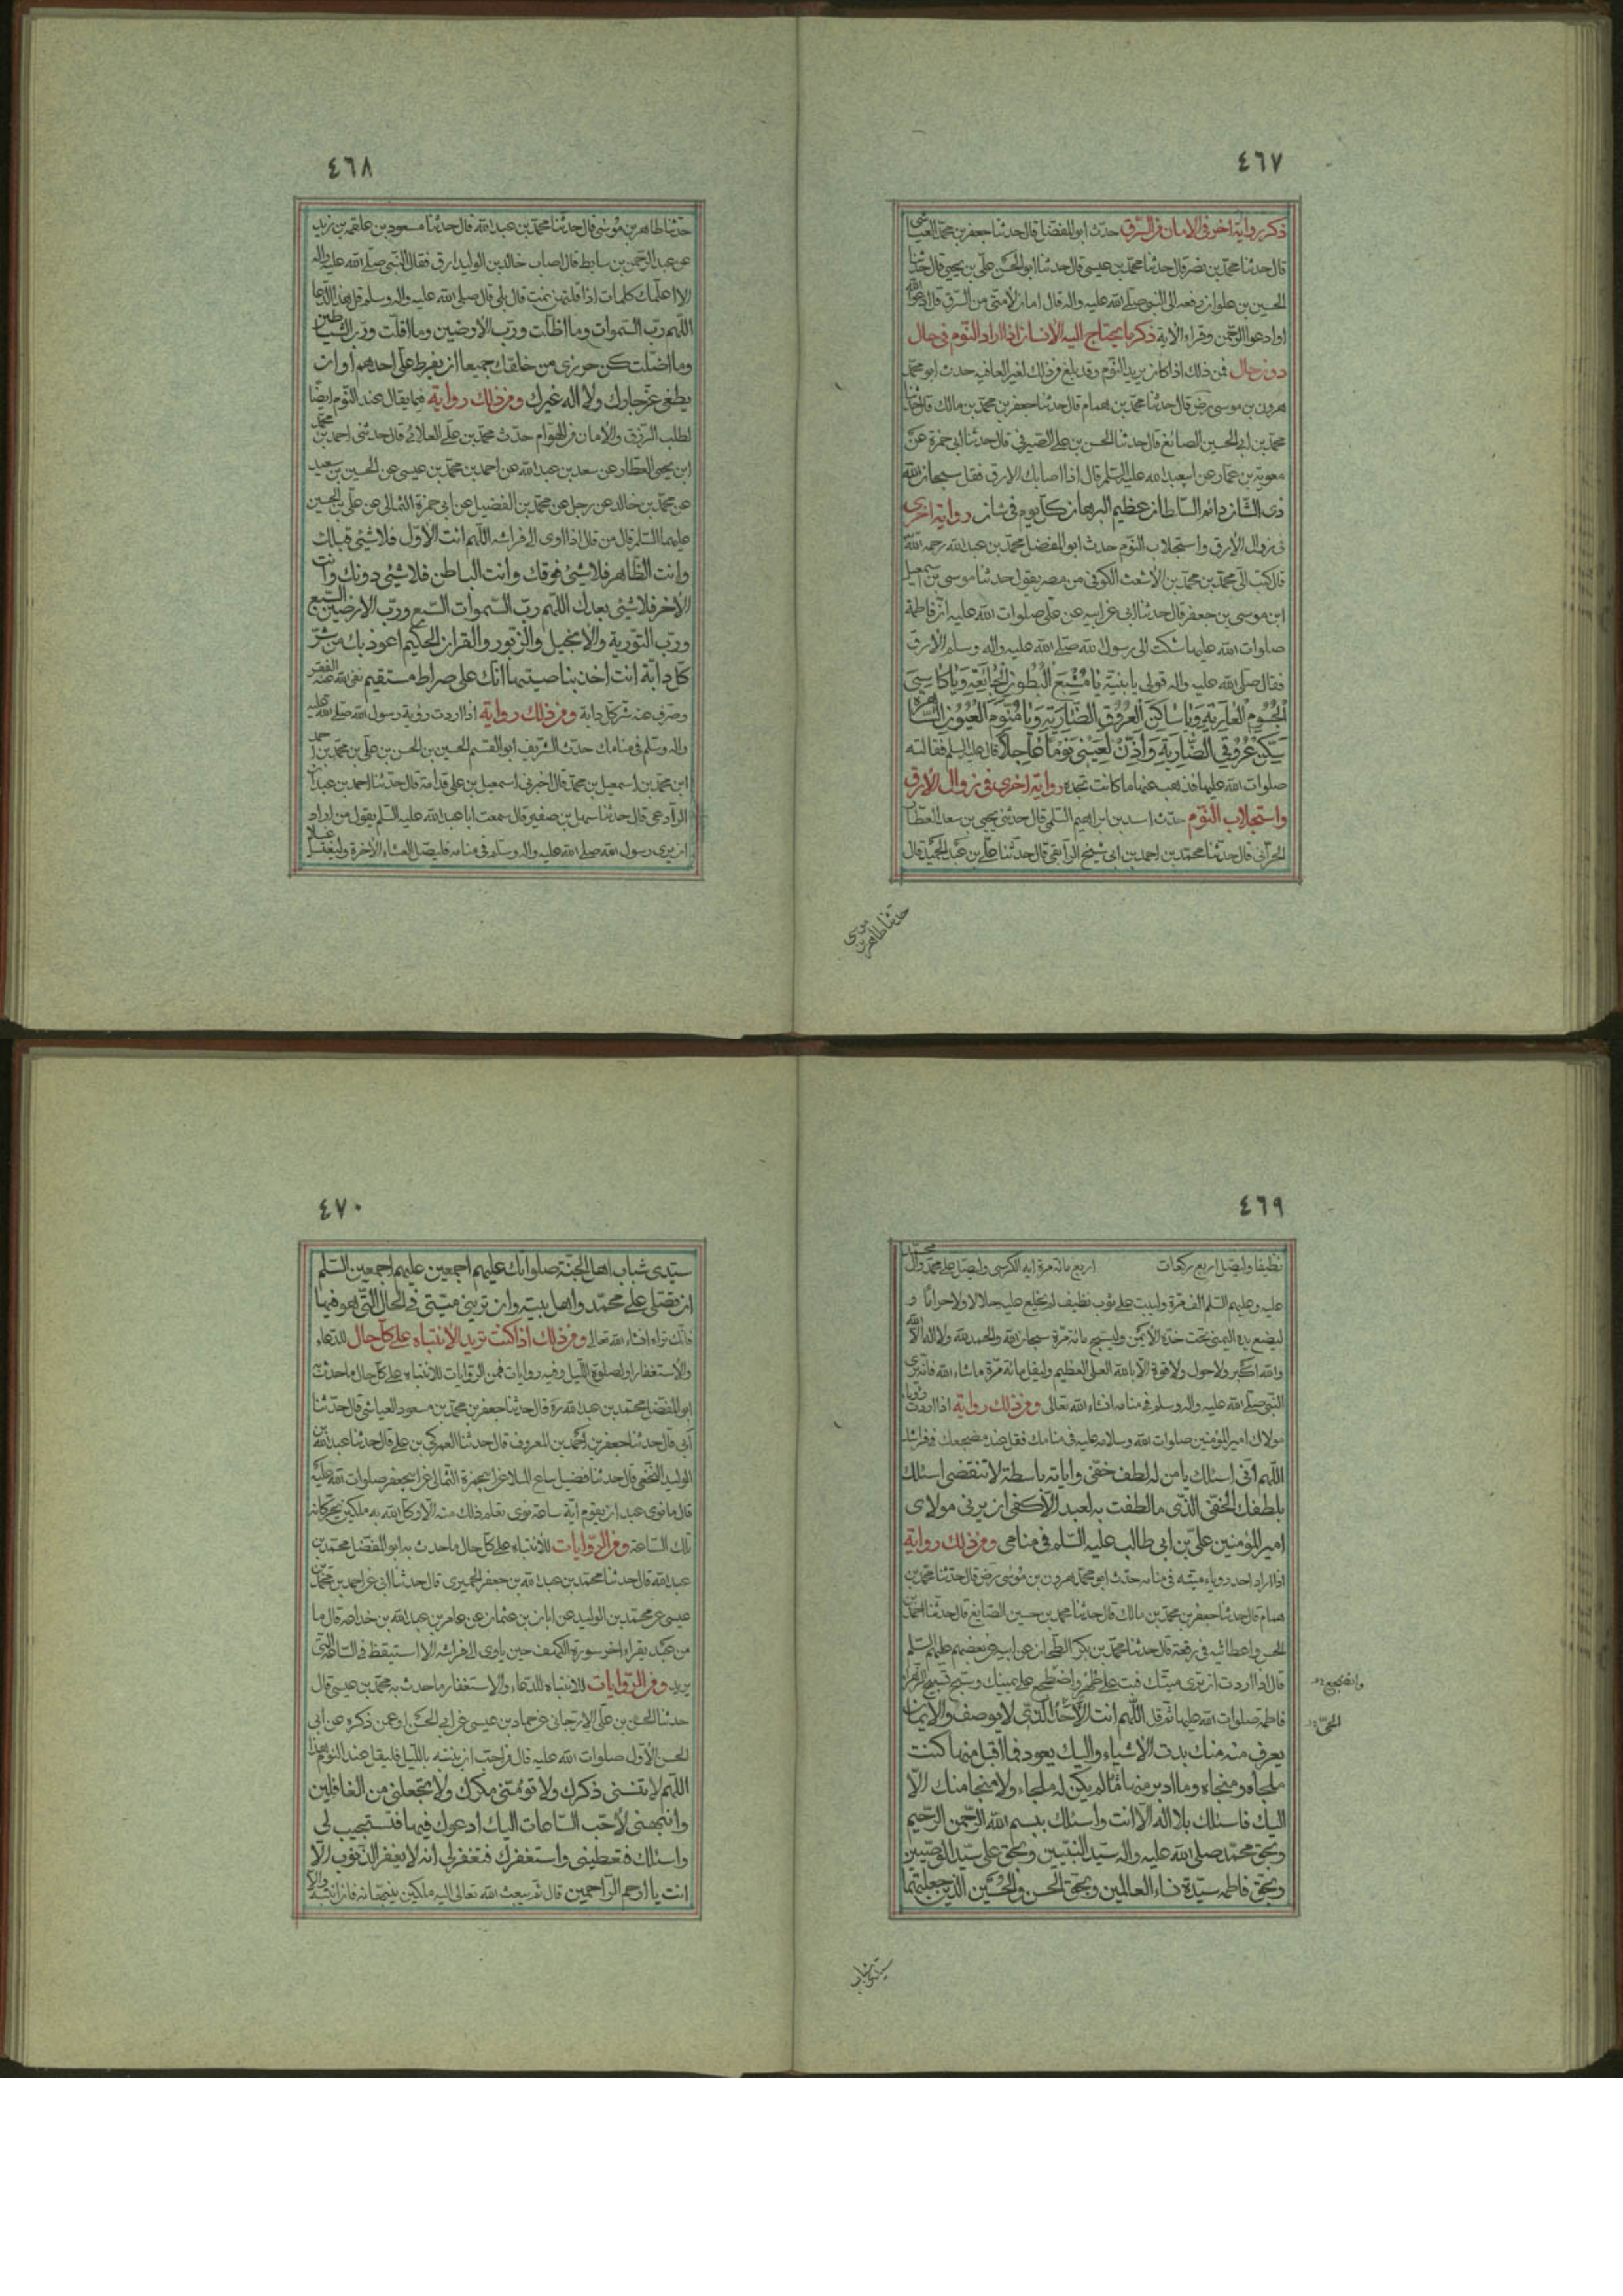 ٤٦٧
ذكر رواية اخرى فى الامان من السرق حدث ابو المفضل قال حدثنا جعفر بن محمد العياشى
قال حدثنا محمد بن نصر قال حدثنا محمد بن عيسى قال حدثنا ابو الحسن على بن يحيى قال حدثنا
الحسين بن علوان رفعه الى النبى صلى الله عليه واله قال امان لامتى من السرق قل ادعوا الله
او ادعوا الرحمن وقراء الاية ذكر ما يحتاج اليه الانسان اذا اراد النوم فى حال
دون حال فمن ذلك اذا كان يريد النوم وقد بلغ فى ذلك لغير العافيه حدث ابو محمد
هرون بن موسى رض قال حدثنا محمد بن همام قال حدثنا جعفر بن محمد بن مالك قال حدثنا
محمد بن ابى الحسين الصائغ قال حدثنا الحسن بن على الصيرفى قال حدثنا ابى حمزة عن
معوية بن عمار عن ابيعبد الله عليه السلم قال اذا اصابك الارق فقل سبحان الله
ذى الشان دائم السلطان عظيم البرهان كل يوم فى شان رواية اخرى
فى زوال الارق واستجلاب النوم حدث ابو المفضل محمد بن عبد الله رحمه الله
قال كتب الى محمد بن محمد بن الاشعث الكوفى من مصر يقول حدثنا موسى بن اسمعيل
ابن موسى بن جعفر قال حدثنا ابى عن ابيه عن على صلوات الله عليه ان فاطمة
صلوات الله عليها شكت الى رسول الله صلى الله عليه واله وسلم الارق
فقال صلى الله عليه واله قولى يا بنية يَا مُشْبِعَ الْبُطُونِ الْجَائِعَةِ وَيَا كَاسِىَ
الْجُسُومِ الْعَارِيَةِ وَيَا سَاكِنَ الْعُرُوقِ الضَّارِبَةِ وَيَا مُنَوِّمَ الْعُيُونِ السَّاهِرَةِ
سَكِّنْ عُرُوقِىَ الضَّارِبَةَ وَأْذَنْ لِعَيْنِى نَوْمًا عَاجِلًا قال عليه السلم فقالته
صلوات الله عليها فذهب عنها ما كانت تجده رواية اخرى فى زوال الارق
واستجلاب النوم حدث اسد بن ابراهيم السلمى قال حدثنى يحيى بن سعد العطار
الحرانى قال حدثنا محمد بن احمد بن ابى شيخ الرافقى قال حدثنا على بن عبد الحميد قال
حدثنا طاهر بن موسى
٤٦٨
حدثنا طاهر بن موسى قال حدثنا محمد بن عبد الله قال حدثنا مسعود بن علقمه بن زيد
عن عبد الرحمن بن سابط قال اصاب خالد بن الوليد ارق فقال النبى صلى الله عليه واله
الا اعلمك كلمات اذا قلتهن نمت قال بلى قال صلى الله عليه واله وسلم قل بهذا الدعا
اللهم رب السموات وما اظلت ورب الارضين وما اقلت ورب الشياطين
وما اضلت كن حرزى من خلقك جميعا ان يفرط على احدهم او ان
يطغى عز جارك ولا اله غيرك ومن ذلك رواية فيما يقال عند النوم ايضا
لطلب الرزق والامان من الهوام حدث محمد بن على العلائى قال حدثنى احمد بن محمد
ابن يحيى العطار عن سعد بن عبد الله عن احمد بن محمد بن عيسى عن الحسين بن سعيد
عن محمد بن خالد عن رجل عن محمد بن الفضيل عن ابى حمزة الثمالى عن على بن الحسين
عليهما السلم قال من قال اذا اوى الى فراشه اللهم انت الاول فلا شئى قبلك
وانت الظاهر فلا شئى فوقك وانت الباطن فلا شئى دونك وانت
الاخر فلا شئى بعدك اللهم رب السموات السبع ورب الارضين السبع
ورب التورية والانجيل والزبور والقران الحكيم اعوذ بك من شر
كل دابة انت اخذ بناصيتها انك على صراط مستقيم نفى الله عنه الفقر
وصرف عنه شر كل دابة ومن ذلك رواية اذا اردت رؤية رسول الله صلى الله عليه
واله وسلم فى منامك حدث الشريف ابو القسم الحسين بن الحسن بن على بن محمد بن احمد
ابن محمد بن اسمعيل بن محمد قال اخبرنى اسمعيل بن على قدامة قال حدثنا احمد بن عبدان
البرادعى قال حدثنا سهل بن صفير قال سمعت ابا عبد الله عليه السلم يقول من اراد
ان يرى رسول الله صلى الله عليه واله وسلم فى منامه فليصل العشاء الاخرة وليغتسل غسلا
٤٦٩
نظيفا وليصل اربع ركعات اربع مائة مرة اية الكرسى وليصل على محمد وال محمد
عليه وعليهم السلم الف مرة وليبت على ثوب نظيف لم يجامع عليه حلالا ولا حراما و
ليضع يده اليمنى تحت خده الايمن وليسبح مائة مرة سبحان الله والحمد لله ولا اله الا الله
والله اكبر ولا حول ولا قوة الا بالله العلى العظيم وليقل مائة مرة ما شاء الله فانه يرى
النبى صلى الله عليه واله وسلم فى منامه انشاء الله تعالى ومن ذلك رواية اذا اردت رؤيا
مولاك امير المؤمنين صلوات الله وسلامه عليه فى منامك فقل عند مضجعك
اللهم انى اسئلك يا من له لطف خفى واياديه باسطة لا تنقضى اسئلك
بلطفك الخفى الذى ما لطفت به لعبد الا كفى ان يرنى مولاى
امير المؤمنين على بن ابى طالب عليه السلم فى منامى ومن ذلك رواية
اذا اراد احد روياء ميته فى منامه حدث ابو محمد هرون بن موسى رض قال حدثنا محمد بن
همام قال حدثنا جعفر بن محمد بن مالك قال حدثنا محمد بن حسين الصايغ قال حدثنا احمد بن
الحسن واعطانيه فى رقعة قال حدثنا محمد بن بكر الطحان عن ابيه عن بعضهم عليهم السلم
قال اذا اردت ان ترى ميتك فبت على طهر واضطجع على يمينك وسبح تسبيح الزهرا
فاطمة صلوات الله عليها ثم قل اللهم انت الاحد الذى لا يوصف والايمان
يعرف منه منك بدت الاشياء واليك يعود فما اقبل منها كنت
ملجاه ومنجاه وما ادبر منها ما لم يكن له ملجاء ولا منجا منك الا
اليك فاسئلك بلا اله الا انت واسئلك ببسم الله الرحمن الرحيم
وبحق محمد صلى الله عليه واله سيد النبيين وبحق على سيد الوصيين
وبحق فاطمه سيدة نساء العالمين وبحق الحسن والحسين الذين جعلتهما
وانضجع
الحى
سيدى شباب
٤٧٠
سيدى شباب اهل الجنة صلواتك عليهم اجمعين عليهم اجمعين السلم
ان تصلى على محمد واهل بيته وان ترينى ميتى فى الحال التى هو فيها
فانك تراه انشاء الله تعالى ومن ذلك اذا كنت تريد الانتباه على كل حال للدعاء
والاستغفار او لصلوة الليل وفيه روايات فمن الروايات للانتباه على كل حال ما حدث به
ابو المفضل محمد بن عبد الله ره قال حدثنا جعفر بن محمد بن مسعود العياشى قال حدثنا
ابى قال حدثنا جعفر بن احمد بن المعروف قال حدثنا العمركى بن على قال حدثنا عبد الله بن
الوليد النخعى قال حدثنا فضيل بياع الملا عن ابى حمزة الثمالى عن ابى جعفر صلوات الله عليه
قال ما نوى عبد ان يقوم اية ساعة نوى يعلم ذلك منه الا وكل الله به ملكين يحركانه
تلك الساعة ومن الروايات للانتباه على كل حال ما حدث به ابو المفضل محمد بن
عبد الله قال حدثنا محمد بن عبد الله بن جعفر الحميرى قال حدثنا ابى عن احمد بن محمد بن
عيسى عن محمد بن الوليد عن ابان بن عثمان عن عامر بن عبد الله بن خداعة قال ما
من عبد يقراء اخر سورة الكهف حين ياوى الى فراشه الا استيقظ فى الساعة التى
يريد ومن الروايات للانتباه للدعاء والاستغفار ما حدث به محمد بن عيسى قال
حدثنا الحسن بن على الارجانى عن حماد بن عيسى عن ابى الحسن او عمن ذكره عن ابى
الحسن الاول صلوات الله عليه قال من احب ان ينتبه بالليل فليقل عند النوم هذا
اللهم لا تنسنى ذكرك ولا تؤمنى مكرك ولا تجعلنى من الغافلين
وانبهنى لاحب الساعات اليك ادعوك فيها فتستجيب لى
واسئلك فتعطينى واستغفرك فتغفر لى انه لا يغفر الذنوب الا
انت يا ارحم الراحمين قال ثم يبعث الله تعالى اليه ملكين ينبهانه فان انتبه والا